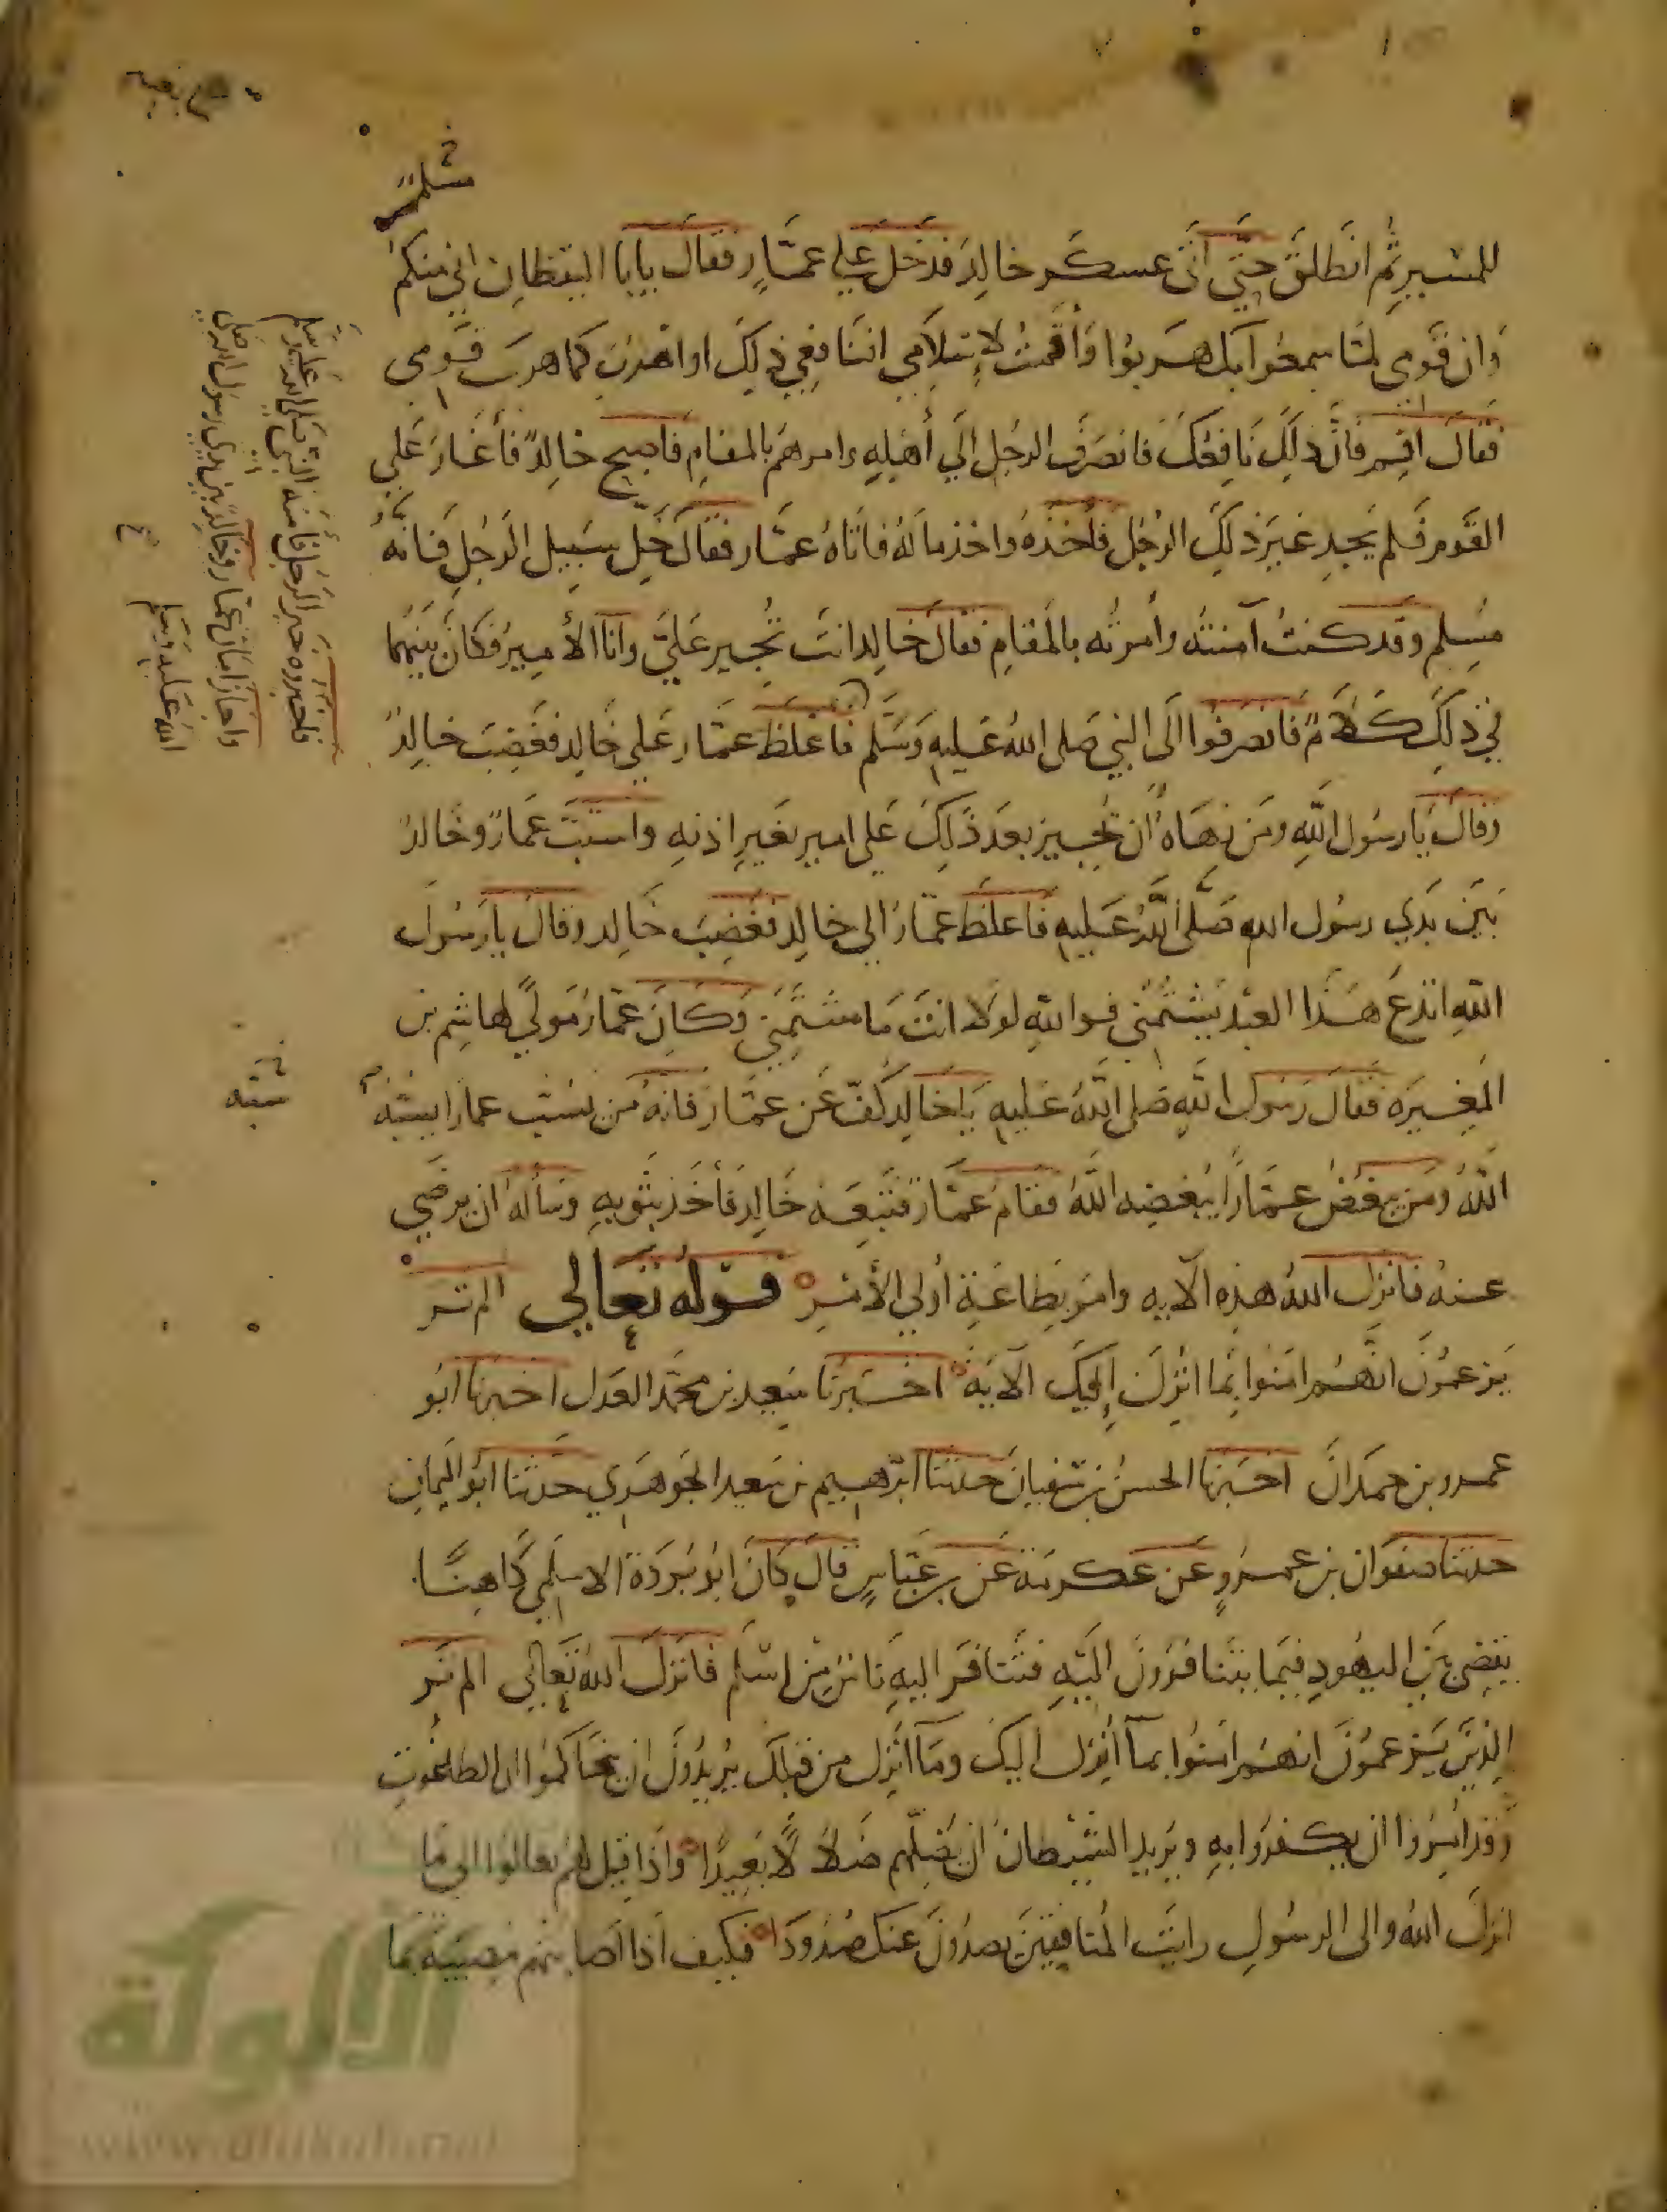 مسلم
للمسير ثم انطلق حتى اتى عسكر خالد فدخل على عمار فقال يابا اليقظان اني منكم
وان قومي لما سمعوا بك هربوا وأقمت لإسلامي انافعي ذلك او اهرب كما هرب قومي
فقال اقم فان ذلك نافعك فانصرف الرجل الى أهله وامرهم بالمقام فاصبح خالد فأغار على
القوم فلم يجد غير ذلك الرجل فأخذه واخذ ماله فاتاه عمار فقال خل سبيل الرجل فانه
مسلم وقد كنت آمنته وأمرته بالمقام فقال خالد انت تجير علي وانا الأمير فكان بينهما
في ذلك كلام فانصرفوا الى النبي صلى الله عليه وسلم فاغلظ عمار على خالد فغضب خالد
وقال يا رسول الله ومن نهاه ان يجير بعد ذلك على امير بغير اذنه واستب عمار وخالد
بين يدي رسول الله صلى الله عليه فاغلظ عمار الى خالد فغضب خالد وقال يا رسول
الله اتدع هذا العبد يشتمني فوالله لولا انت ما شتمني وكان عمار مولى لهاشم بن
المغيره فقال رسول الله صلى الله عليه يا خالد كف عن عمار فانه من يسب عمارا يسبه
الله ومن يبغض عمارا يبغضه الله فقام عمار فتبعه خالد فأخذ بثوبه وسأله ان يرضى
عنه فانزل الله هذه الآيه وامر بطاعة أولي الأمر قوله تعالى الم تر
يزعمون انهم امنوا بما انزل إليك الآية اخبرنا سعيد بن محمد العدل اخبرنا ابو
عمرو بن حمدان اخبرنا الحسن بن سفيان حدثنا ابرهيم بن سعيد الجوهري حدثنا ابو اليمان
حدثنا صفوان بن عمرو عن عكرمة عن بن عباس قال كان ابو بردة الاسلمي كاهنا
يقضي بين اليهود فيما يتنافرون اليه فتنافر اليه ناس من اسلم فانزل الله تعالى الم تر
الذين يزعمون انهم امنوا بما أنزل اليك وما انزل من قبلك يريدون ان يتحاكموا الى الطاغوت
وقد امروا ان يكفروا به ويريد الشيطان ان يضلهم ضلالا بعيدا واذا قيل لهم تعالوا الى ما
انزل الله والى الرسول رايت المنافقين يصدون عنك صدودا فكيف اذا اصابتهم مصيبة بما
فاخبروه خبر الرجل فأمنه النبي صلى الله عليه وسلم
واجاز امان عمار وخالد بين يدي رسول الله صلى
الله عليه وسلم
سبه
الألوكة
www.alukah.net